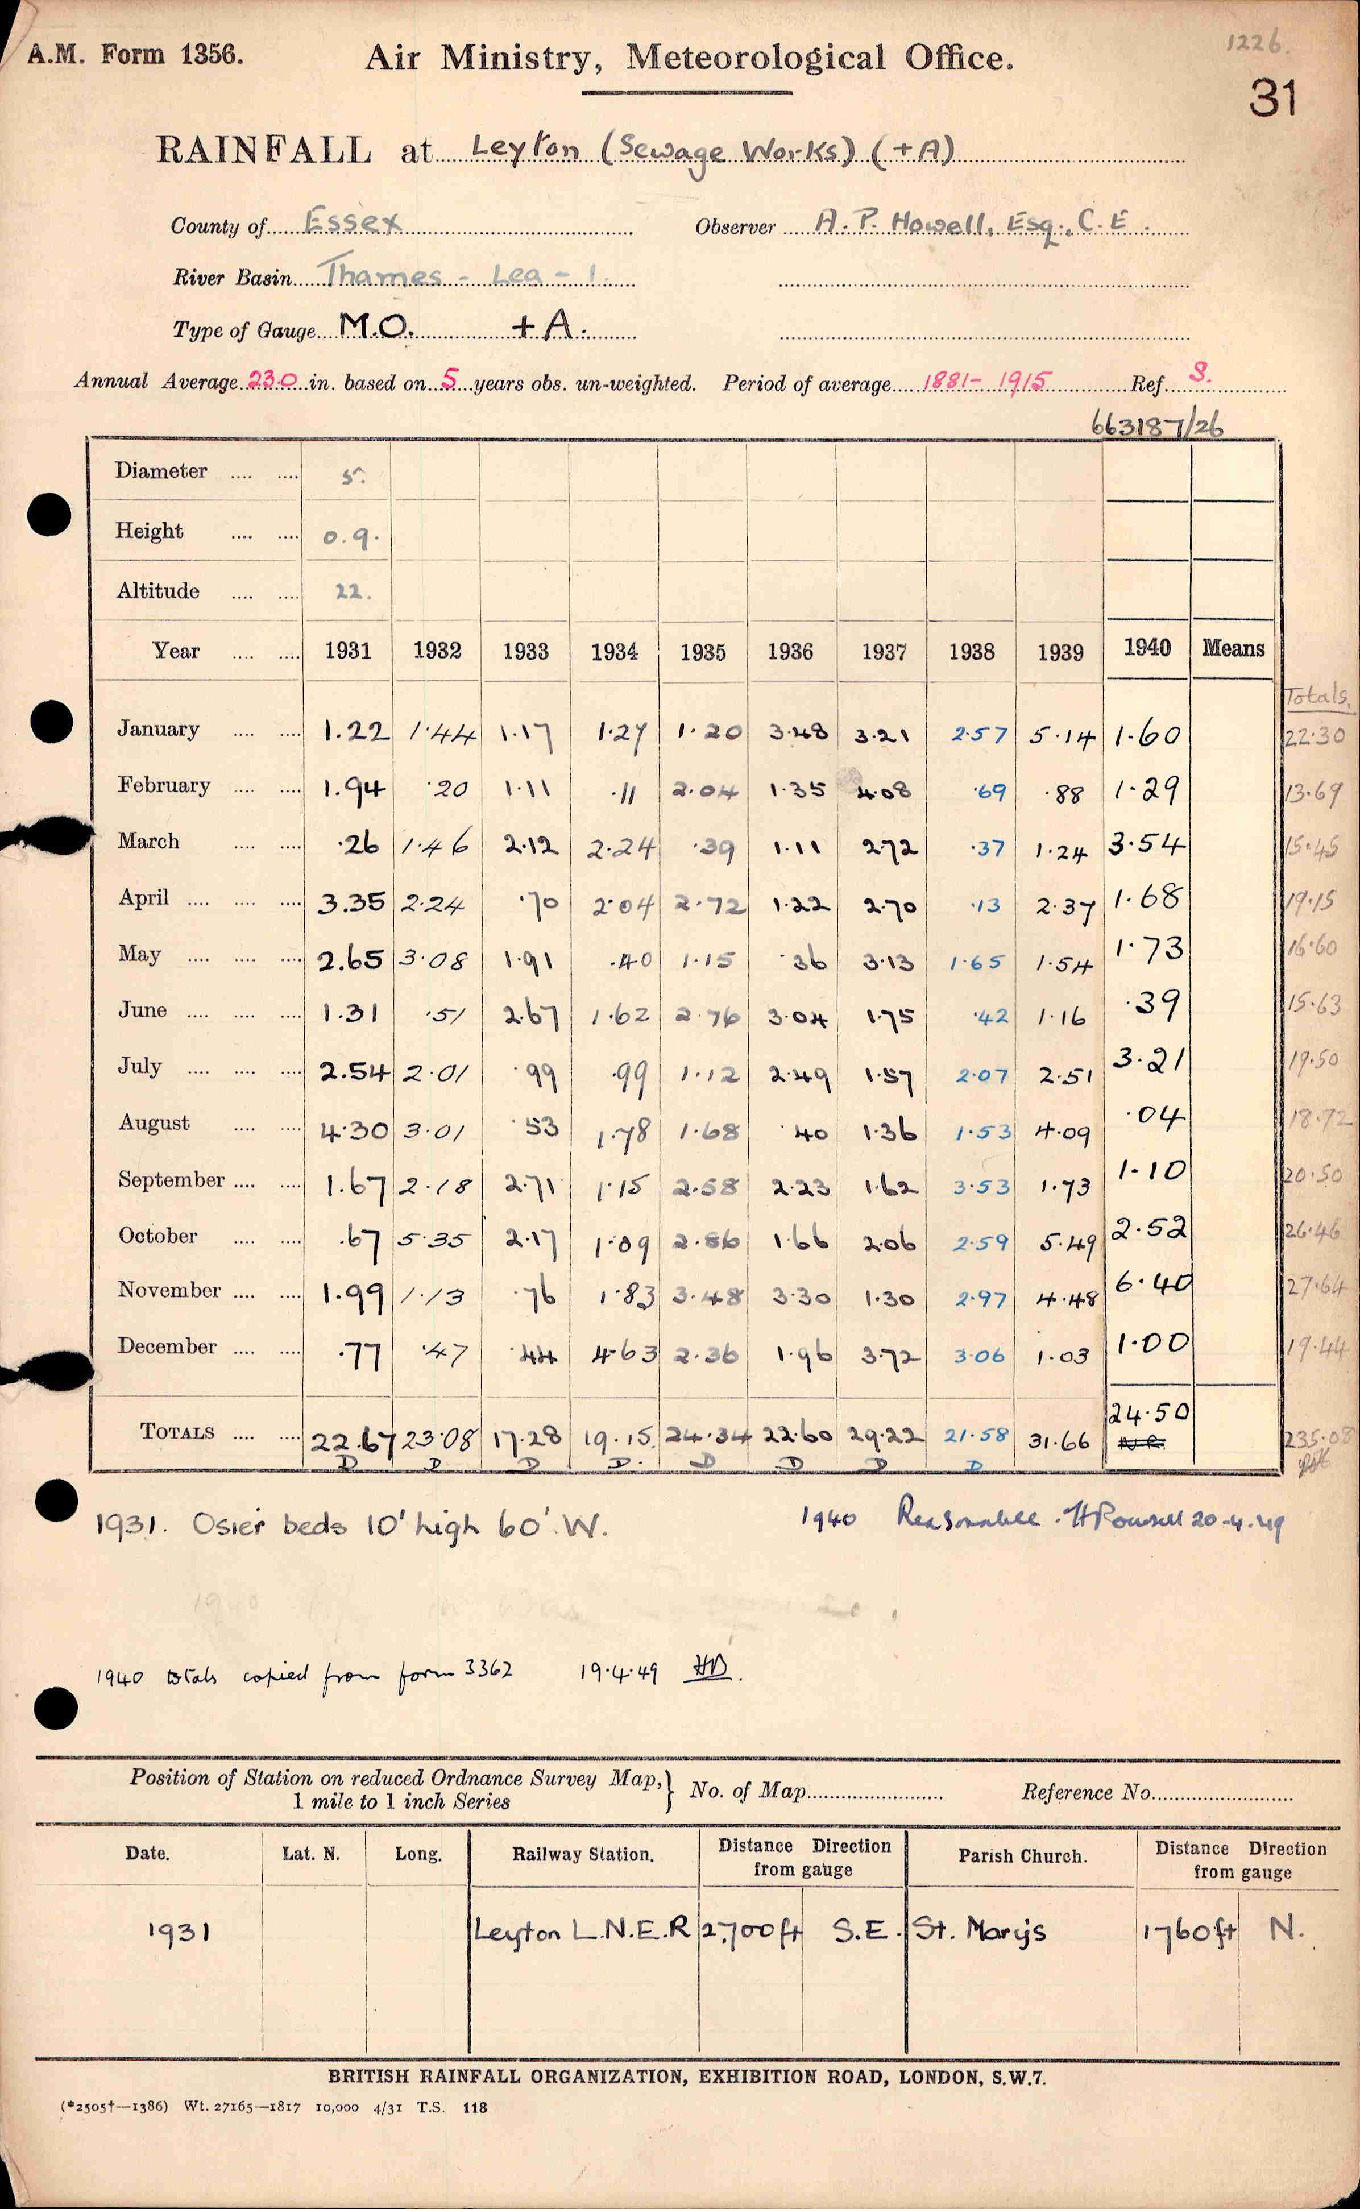 1226.
A.M. Form 1356. Air Ministry, Meteorological Office.
31
RAINFALL at Leyton (Sewage Works) (+A)
County of Essex Observer A. P. Howell, Esq., C.E.
River Basin Thames - Lea - 1.
Type of Gauge M.O. +A.
Annual Average 23.0 in. based on 5 years obs. un-weighted. Period of average 1881- 1915 Ref. S.
663187/26
Diameter .... .... 5".
Height .... .... 0.9.
Altitude .... .... 22.
Year .... .... 1931 1932 1933 1934 1935 1936 1937 1938 1939 1940 Means
Totals.
January .... .... 1.22 1.44 1.17 1.27 1.20 3.48 3.21 2.57 5.14 1.60 22.30
February .... .... 1.94 .20 1.11 .11 2.04 1.35 4.08 .69 .88 1.29 13.69
March .... .... .26 1.46 2.12 2.24 .39 1.11 2.72 .37 1.24 3.54 15.45
April .... .... .... 3.35 2.24 .70 2.04 2.72 1.22 2.70 .13 2.37 1.68 19.15
May .... .... .... 2.65 3.08 1.91 .40 1.15 .36 3.13 1.65 1.54 1.73 16.60
June .... .... .... 1.31 .51 2.67 1.62 2.76 3.04 1.75 .42 1.16 .39 15.63
July .... .... .... 2.54 2.01 .99 .99 1.12 2.49 1.57 2.07 2.51 3.21 19.50
August .... .... 4.30 3.01 .53 1.78 1.68 .40 1.36 1.53 4.09 .04 18.72
September .... .... 1.67 2.18 2.71 1.15 2.58 2.23 1.62 3.53 1.73 1.10 20.50
October .... .... .67 5.35 2.17 1.09 2.86 1.66 2.06 2.59 5.49 2.52 26.46
November .... .... 1.99 1.13 .76 1.83 3.48 3.30 1.30 2.97 4.48 6.40 27.64
December .... .... .77 .47 .44 4.63 2.36 1.96 3.72 3.06 1.03 1.00 19.44
TOTALS .... .... 22.67 23.08 17.28 19.15 24.34 22.60 29.22 21.58 31.66 24.50 N.R. 235.08
D D D D. D D D D
1931. Osier beds 10' high 60'. W. 1940 Reasonable. 20-4-49
1940 totals copied from form 3362 19.4.49 HD.
Position of Station on reduced Ordnance Survey Map, } No. of Map Reference No.
1 mile to 1 inch Series
Date. Lat. N. Long. Railway Station. Distance Direction from gauge Parish Church. Distance Direction from gauge
1931 Leyton L.N.E.R 2,700ft S.E. St. Mary's 1760ft N.
BRITISH RAINFALL ORGANIZATION, EXHIBITION ROAD, LONDON, S.W.7.
(*2505†—1386) Wt. 27165—1817 10,000 4/31 T.S. 118